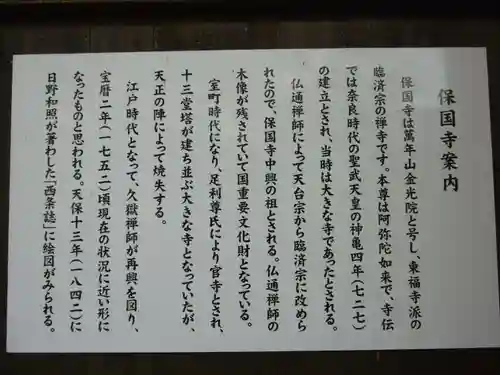 保国寺案内
保国寺は萬年山金光院と号し、東福寺派の
臨済宗の禅寺です。本尊は阿弥陀如来で、寺伝
では奈良時代の聖武天皇の神亀四年(七二七)
の建立とされ、当時は大きな寺であったとされる。
仏通禅師によって天台宗から臨済宗に改めら
れたので、保国寺中興の祖とされる。仏通禅師の
木像が残されていて国重要文化財となっている。
室町時代になり、足利尊氏により官寺とされ、
十三堂塔が建ち並ぶ大きな寺となっていたが、
天正の陣によって焼失する。
江戸時代となって、久嶽禅師が再興を図り、
宝暦二年(一七五二)頃現在の状況に近い形に
なったものと思われる。天保十三年(一八四二)に
日野和煦が著わした「西条誌」に絵図がみられる。